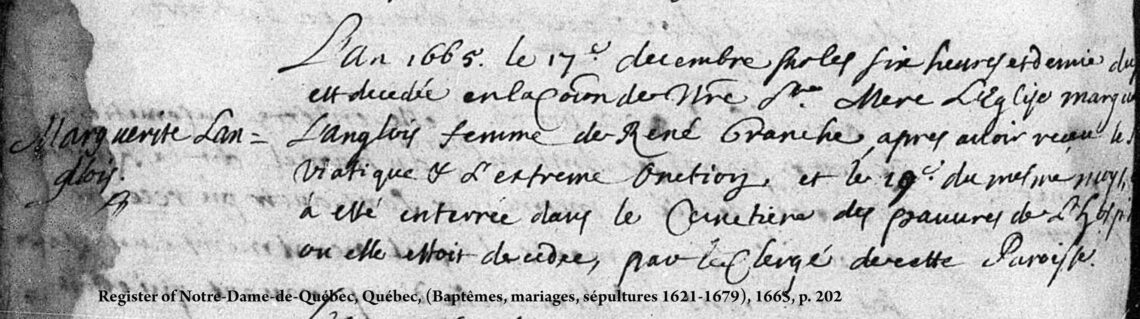 L'an 1665. le 17e decembre sur les six heures et demie du
est decedée en la Coion de Nre Ste Mere L'Eglise margu
Marguerite Lan=
Langlois femme de René Branche, apres avoir receu le
glois.
Viatique & L'extreme Onction, et le 19e du mesme moys
à esté enterrée dans le Cimetiere des pauvres de L'hospi
ou elle estoit decedée, par le Clergé de cette Paroisse.
Register of Notre-Dame-de-Québec, Québec, (Baptêmes, mariages, sépultures 1621-1679), 1665, p. 202